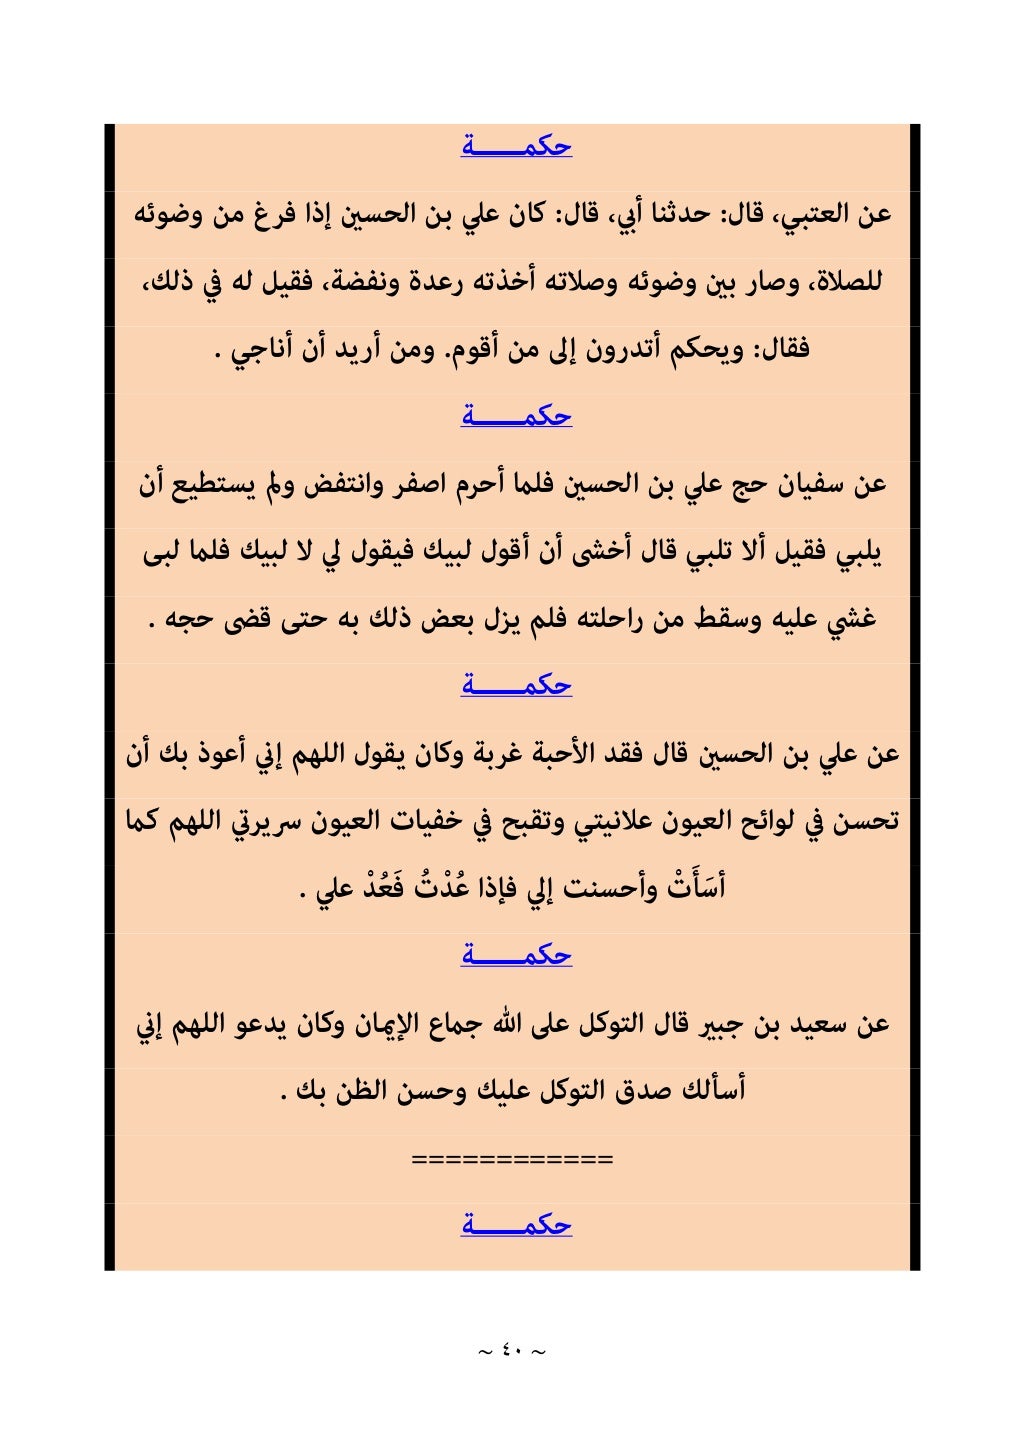 حكمـــــــة
عن العتبي، قال: حدثنا أبي، قال: كان علي بن الحسين إذا فرغ من وضوئه
للصلاة، وصار بين وضوئه وصلاته أخذته رعدة ونفضة، فقيل له في ذلك،
فقال: ويحكم أتدرون إلى من أقوم. ومن أريد أن أناجي .
حكمـــــــة
عن سفيان حج علي بن الحسين فلما أحرم اصفر وانتفض ولم يستطيع أن
يلبي فقيل ألا تلبي قال أخشى أن أقول لبيك فيقول لي لا لبيك فلما لبى
غشي عليه وسقط من راحلته فلم يزل بعض ذلك به حتى قضى حجه .
حكمـــــــة
عن علي بن الحسين قال فقد الأحبة غربة وكان يقول اللهم إني أعوذ بك أن
تحسن في لوائح العيون علانيتي وتقبح في خفيات العيون سريرتي اللهم كما
أسَأَتْ وأحسنت إلي فإذا عُدْتُ فَعُدْ علي .
حكمـــــــة
عن سعيد بن جبير قال التوكل على الله جماع الإيمان وكان يدعو اللهم إني
أسألك صدق التوكل عليك وحسن الظن بك .
============
حكمـــــــة
~ ٤٠ ~